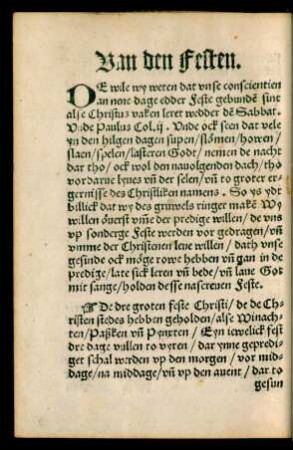 Van den Festen.
DE wile wy weten dat vnse conscientien
an nene dage edder Feste gebundē sint
alse Christus vaken leret wedder dē Sabbat.
Vnde Paulus Col. ij. Vnde ock seen dat vele
yn den hilgen dagen supen/slömen/howen/
slaen/spelen/lasteren Godt/nemen de nacht
dar tho/ock wol den nauolgenden dach/tho
vordarue lyues vñ der selen/vñ to groter er-
gernisse des Christliken namens. So ys ydt
billick dat wy des gruwels ringer makē Wy
willen öuerst vm̄e der predige willen/de vns
vp sonderge Feste werden vor gedragen/vñ
vmme der Christenen leue willen/dath vnse
gesinde ock möge rowe hebben vñ gan in de
predige/late sick leren vñ bede/vñ laue Got
mit sange/holden desse nascreuen Feste.
¶ De dre groten feste Christi/de de Ch-
risten stedes hebben geholden/alse Winach-
ten/Paßken vñ Pynxten/Eyn iewelick fest
dre dage vullen to vyren/dar ynne gepredi-
get schal werden vp den morgen/vor mid-
dage/na middage/vñ vp den auent/dar to
gesun